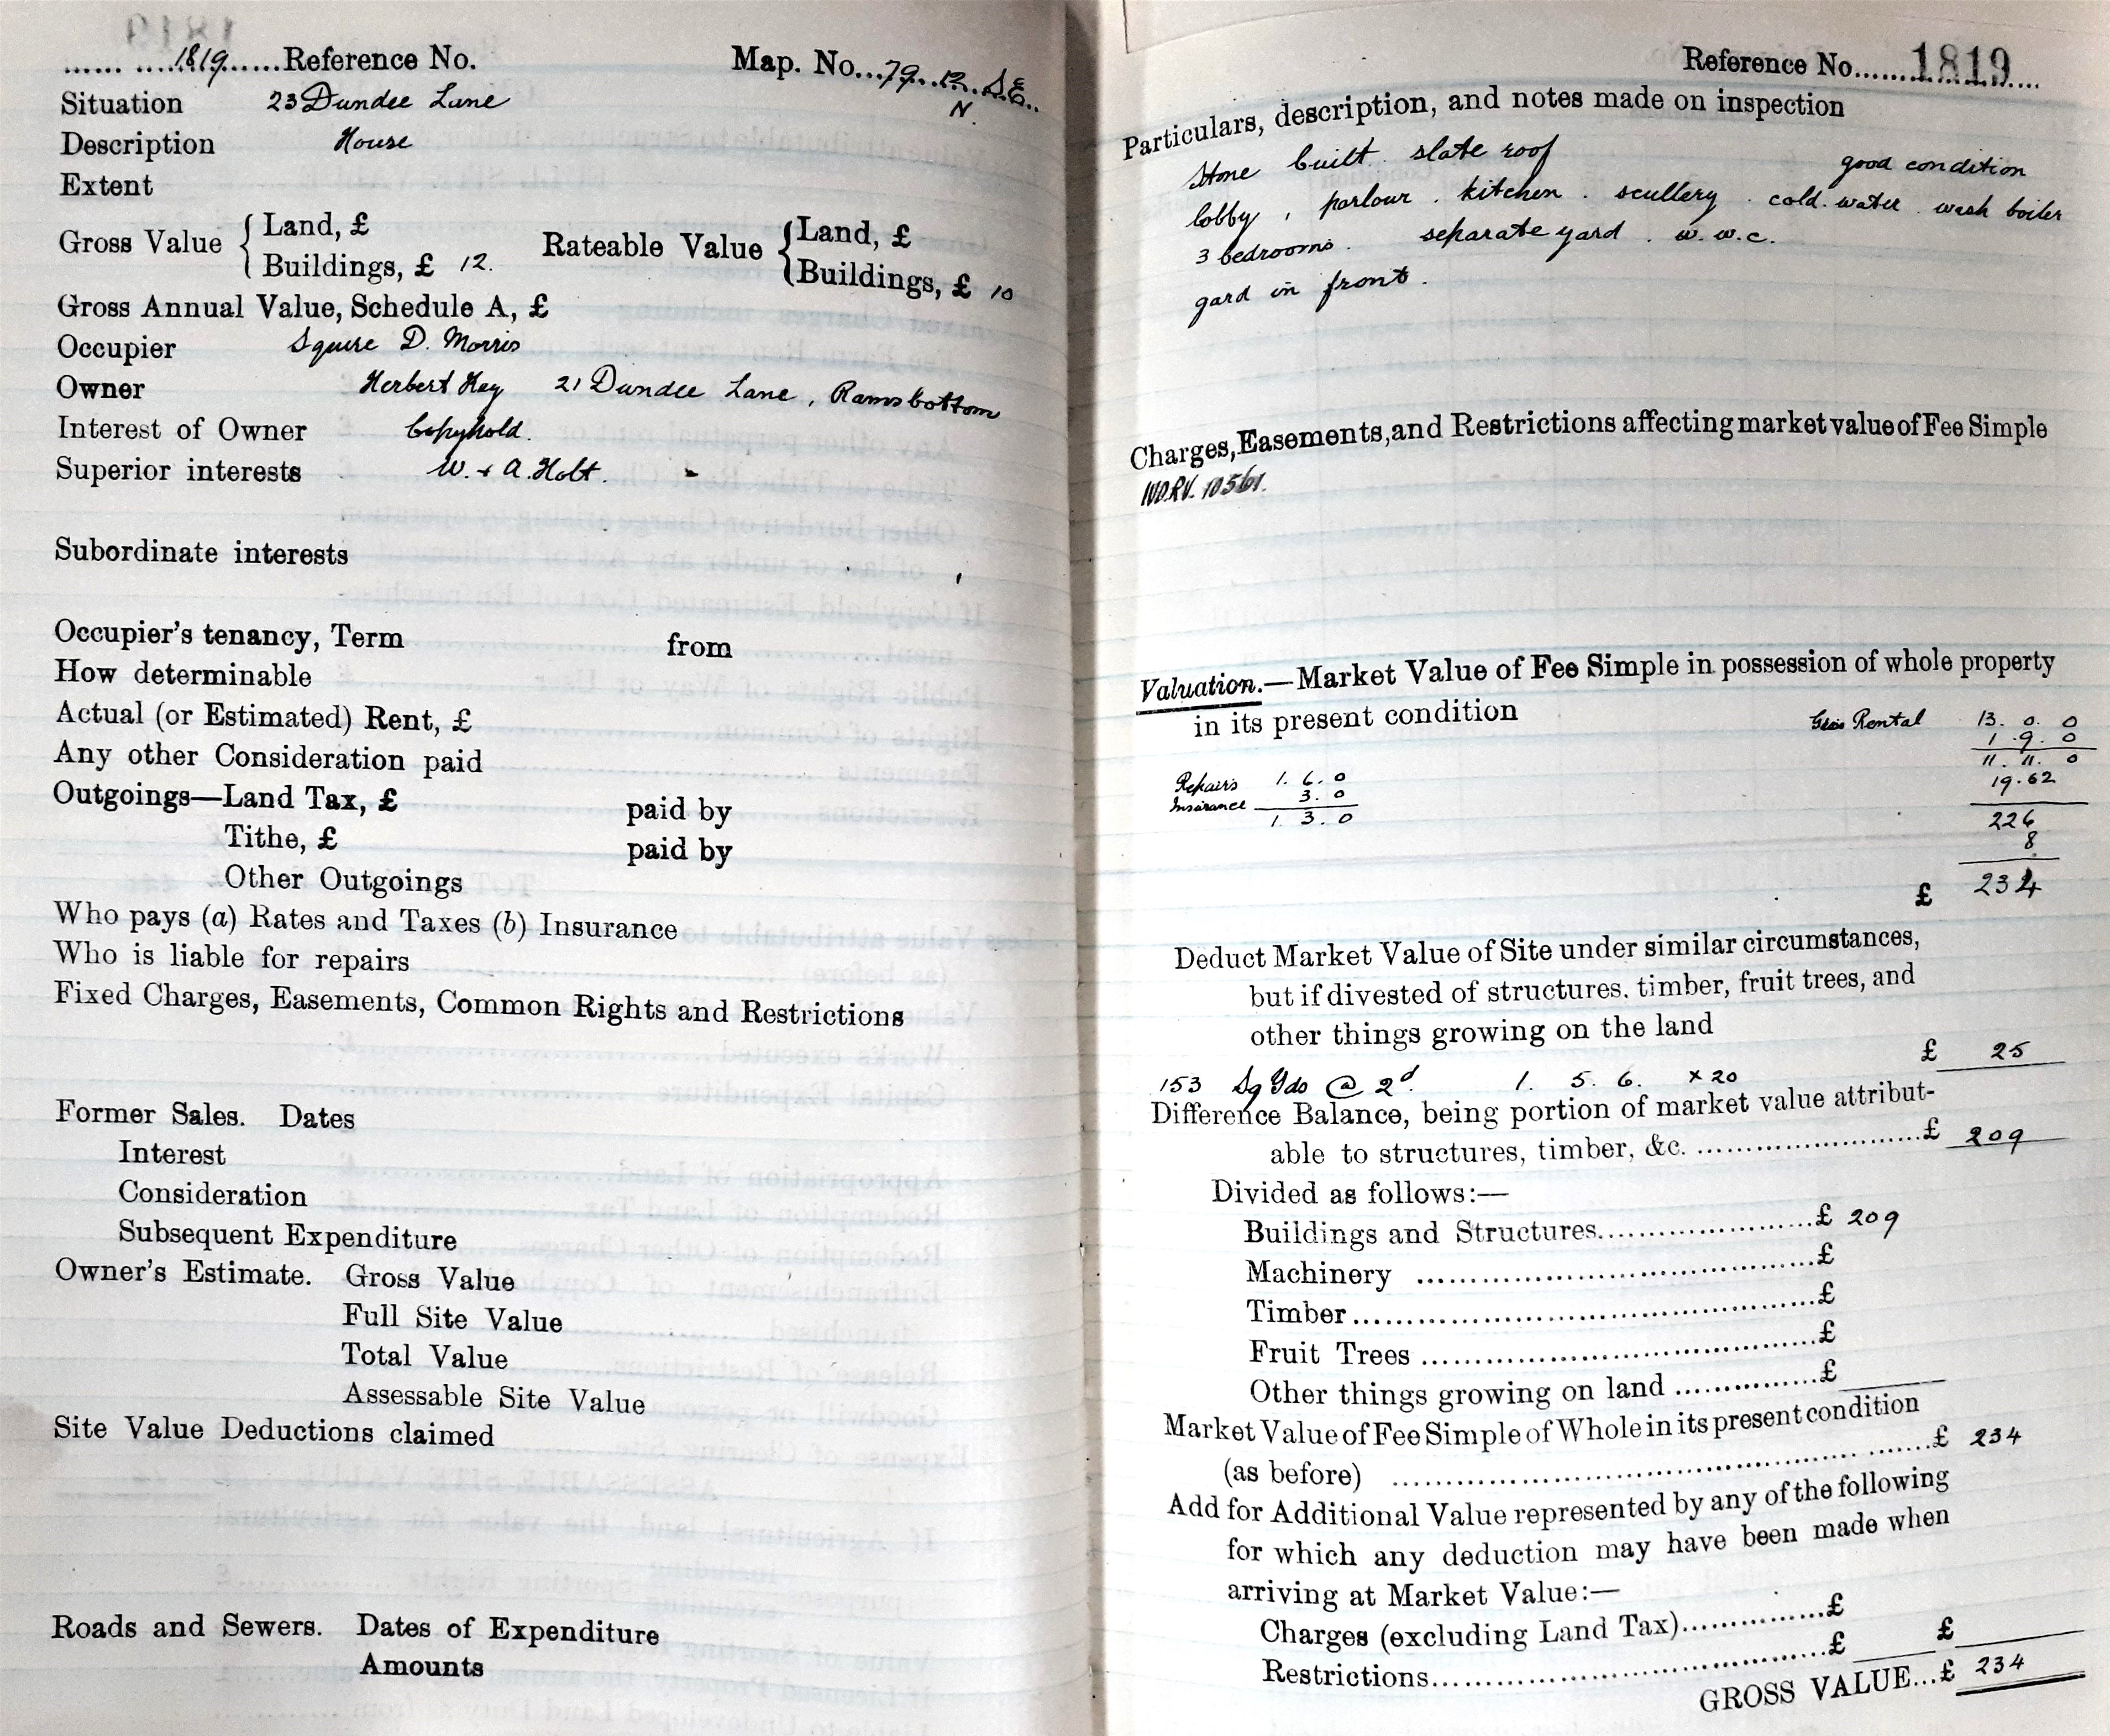 1819 Reference No. Map. No. 79. 12. S.E.
N.
Situation 23 Dundee Lane
Description House
Extent
Gross Value { Land, £
Buildings, £ 12. Rateable Value { Land, £
Buildings, £ 10
Gross Annual Value, Schedule A, £
Occupier Squire D. Morris
Owner Herbert Kay 21 Dundee Lane, Ramsbottom
Interest of Owner Copyhold.
Superior interests W. + A. Holt.
Subordinate interests
Occupier's tenancy, Term from
How determinable
Actual (or Estimated) Rent, £
Any other Consideration paid
Outgoings—Land Tax, £ paid by
Tithe, £ paid by
Other Outgoings
Who pays (a) Rates and Taxes (b) Insurance
Who is liable for repairs
Fixed Charges, Easements, Common Rights and Restrictions
Former Sales. Dates
Interest
Consideration
Subsequent Expenditure
Owner's Estimate. Gross Value
Full Site Value
Total Value
Assessable Site Value
Site Value Deductions claimed
Roads and Sewers. Dates of Expenditure
Amounts
Reference No. 1819
Particulars, description, and notes made on inspection
Stone built. slate roof good condition
lobby, parlour. kitchen. scullery. cold. water. wash boiler
3 bedrooms. separate yard. w.w.c.
gard in front.
Charges, Easements, and Restrictions affecting market value of Fee Simple
Valuation.—Market Value of Fee Simple in possession of whole property
in its present condition Gross Rental 13. 0. 0
1. 9. 0
11. 11. 0
Repairs 1. 6. 0 19.62
Insurance 3. 0
1. 3. 0 226
8
£ 234
Deduct Market Value of Site under similar circumstances,
but if divested of structures, timber, fruit trees, and
other things growing on the land
£ 25
153 Sq Yds @ 2d. 1. 5. 6. x 20
Difference Balance, being portion of market value attribut-
able to structures, timber, &c. £ 209
Divided as follows:—
Buildings and Structures £ 209
Machinery £
Timber £
Fruit Trees £
Other things growing on land £
Market Value of Fee Simple of Whole in its present condition
(as before) £ 234
Add for Additional Value represented by any of the following
for which any deduction may have been made when
arriving at Market Value:—
Charges (excluding Land Tax) £
Restrictions £ £
GROSS VALUE...£ 234